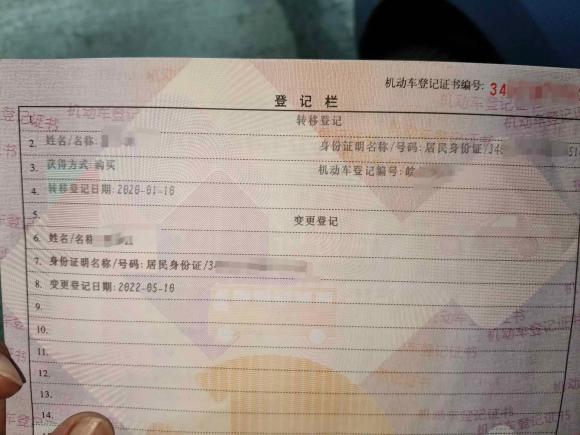 机动车登记证书编号: 34
登 记 栏
1. 转移登记
2. 姓名/名称: 身份证明名称/号码: 居民身份证/34 51
3. 获得方式: 购买 机动车登记编号: 皖
4. 转移登记日期: 2020-01-10
5. 变更登记
6. 姓名/名称
7. 身份证明名称/号码: 居民身份证/34
8. 变更登记日期: 2022-05-10
9.
10.
11.
12.
13.
14.